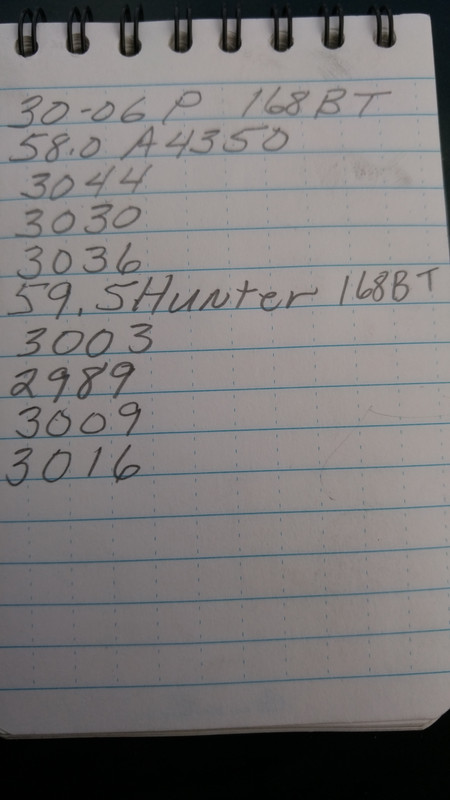 30-06 P 168BT
58.0 A4350
3044
3030
3036
59.5 Hunter 168BT
3003
2989
3009
3016